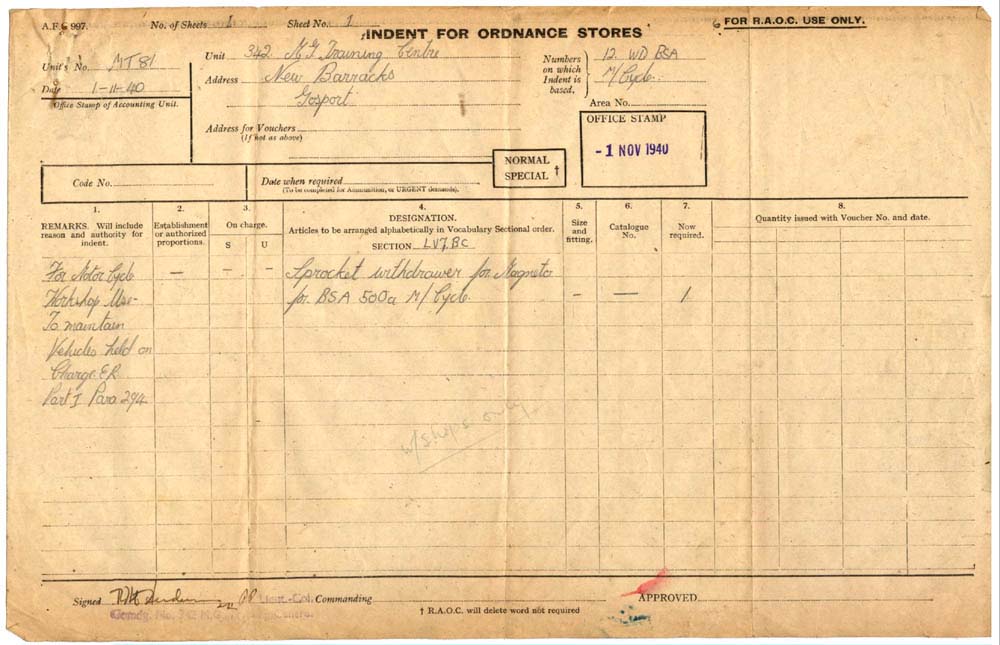 A.F.G 997. No. of Sheets 1 Sheet No. 1
INDENT FOR ORDNANCE STORES
FOR R.A.O.C. USE ONLY.
Unit's No. MT 81
Date 1-11-40
Office Stamp of Accounting Unit.
Unit 342 M G Training Centre
Address New Barracks
Gosport
Address for Vouchers
(If not as above)
Numbers on which Indent is based. 12 WD BSA
M/Cycle.
Area No.
OFFICE STAMP
- 1 NOV 1940
NORMAL
SPECIAL †
Code No.
Date when required
(To be completed for Ammunition, or URGENT demands).
1.
REMARKS. Will include
reason and authority for
indent.
2.
Establishment
or authorized
proportions.
3.
On charge.
S U
4.
DESIGNATION.
Articles to be arranged alphabetically in Vocabulary Sectional order.
SECTION LV7/BC
5.
Size
and
fitting.
6.
Catalogue
No.
7.
Now
required.
8.
Quantity issued with Voucher No. and date.
For Motor Cycle — - - Sprocket withdrawer for Magneto
Workshop Use- for BSA 500a M/Cycle. - — 1
To maintain
Vehicles held on
Charge. E.R.
Part I Para 294
w/shops only
Signed Lieut.-Col. Commanding
Comdg. No.
† R.A.O.C. will delete word not required
APPROVED